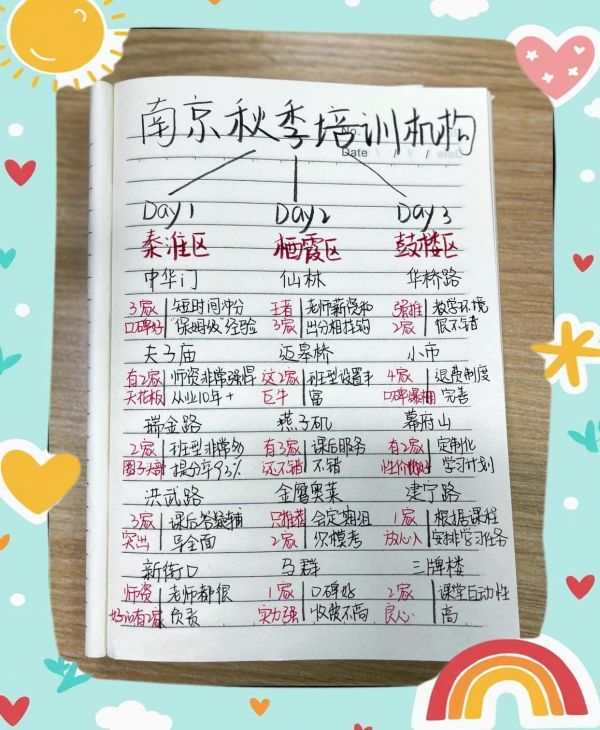 南京秋季培训机构
No.
Date
Day 1 Day 2 Day 3
秦淮区 栖霞区 鼓楼区
中华门 仙林 华桥路
3家 短时间冲分 王者 老师薪资和 强推 教学环境
口碑好 保姆级经验 3家 出分相挂钩 2家 很不错
夫子庙 迈皋桥 小市
有2家 师资非常强悍 这2家 班型设置丰 4家 退费制度
天花板 从业10年+ 巨牛 富 口碑爆棚 完善
瑞金路 燕子矶 幕府山
2家 班型非常多 有3家 课后服务 有2家 定制化
圈子头部 提分率92% 还不错 不错 性价比好 学习计划
洪武路 金鹰奥莱 建宁路
3家 课后答疑辅 只推荐 会定期组 1家 根据课程
突出 导全面 2家 织模考 放心入 安排学习任务
新街口 马群 三牌楼
师资 老师都很 1家 口碑好 2家 课堂互动性
好的有2家 负责 实力强 收费不高 良心 高